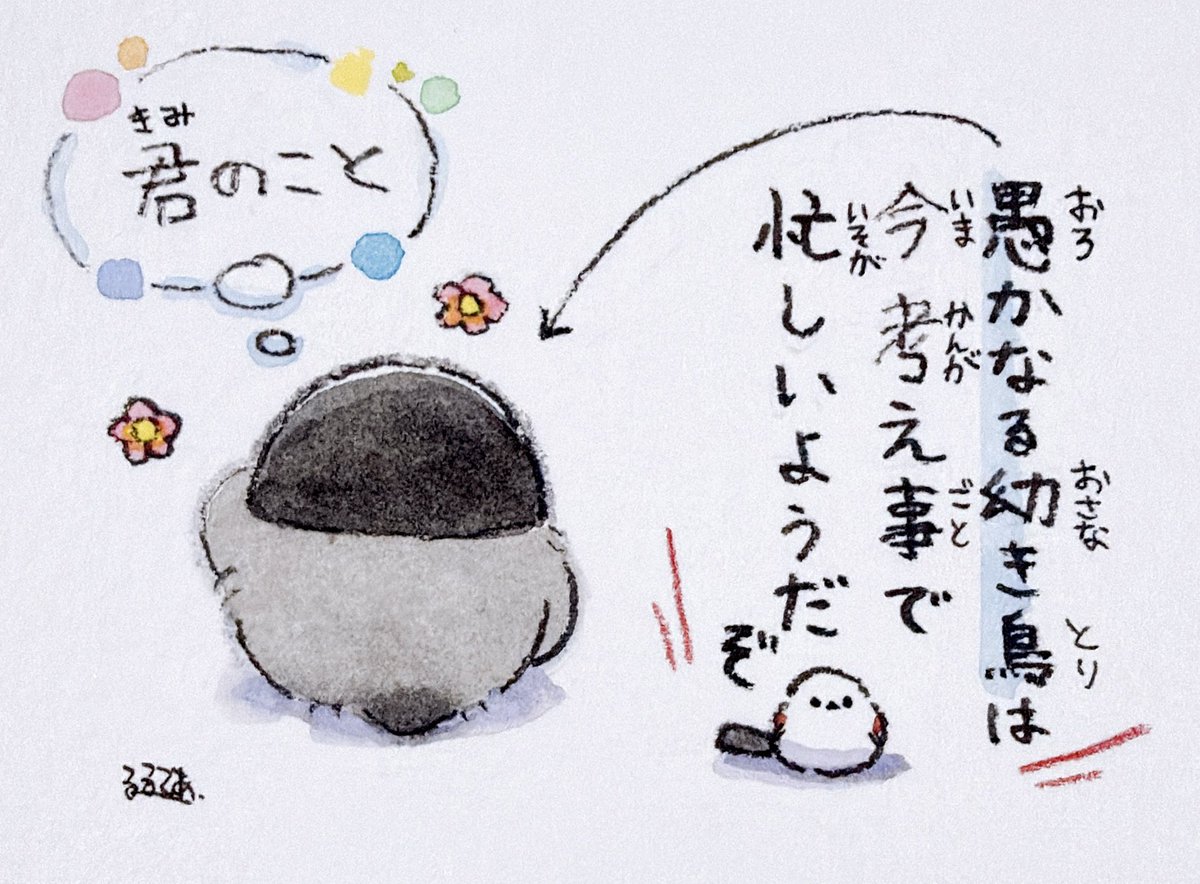 愚かなる幼き鳥は
おろ
おさな
とり
今考え事で
いま
かんが
ごと
忙しいようだ
いそが
ぞ
きみ
君のこと
るるてあ